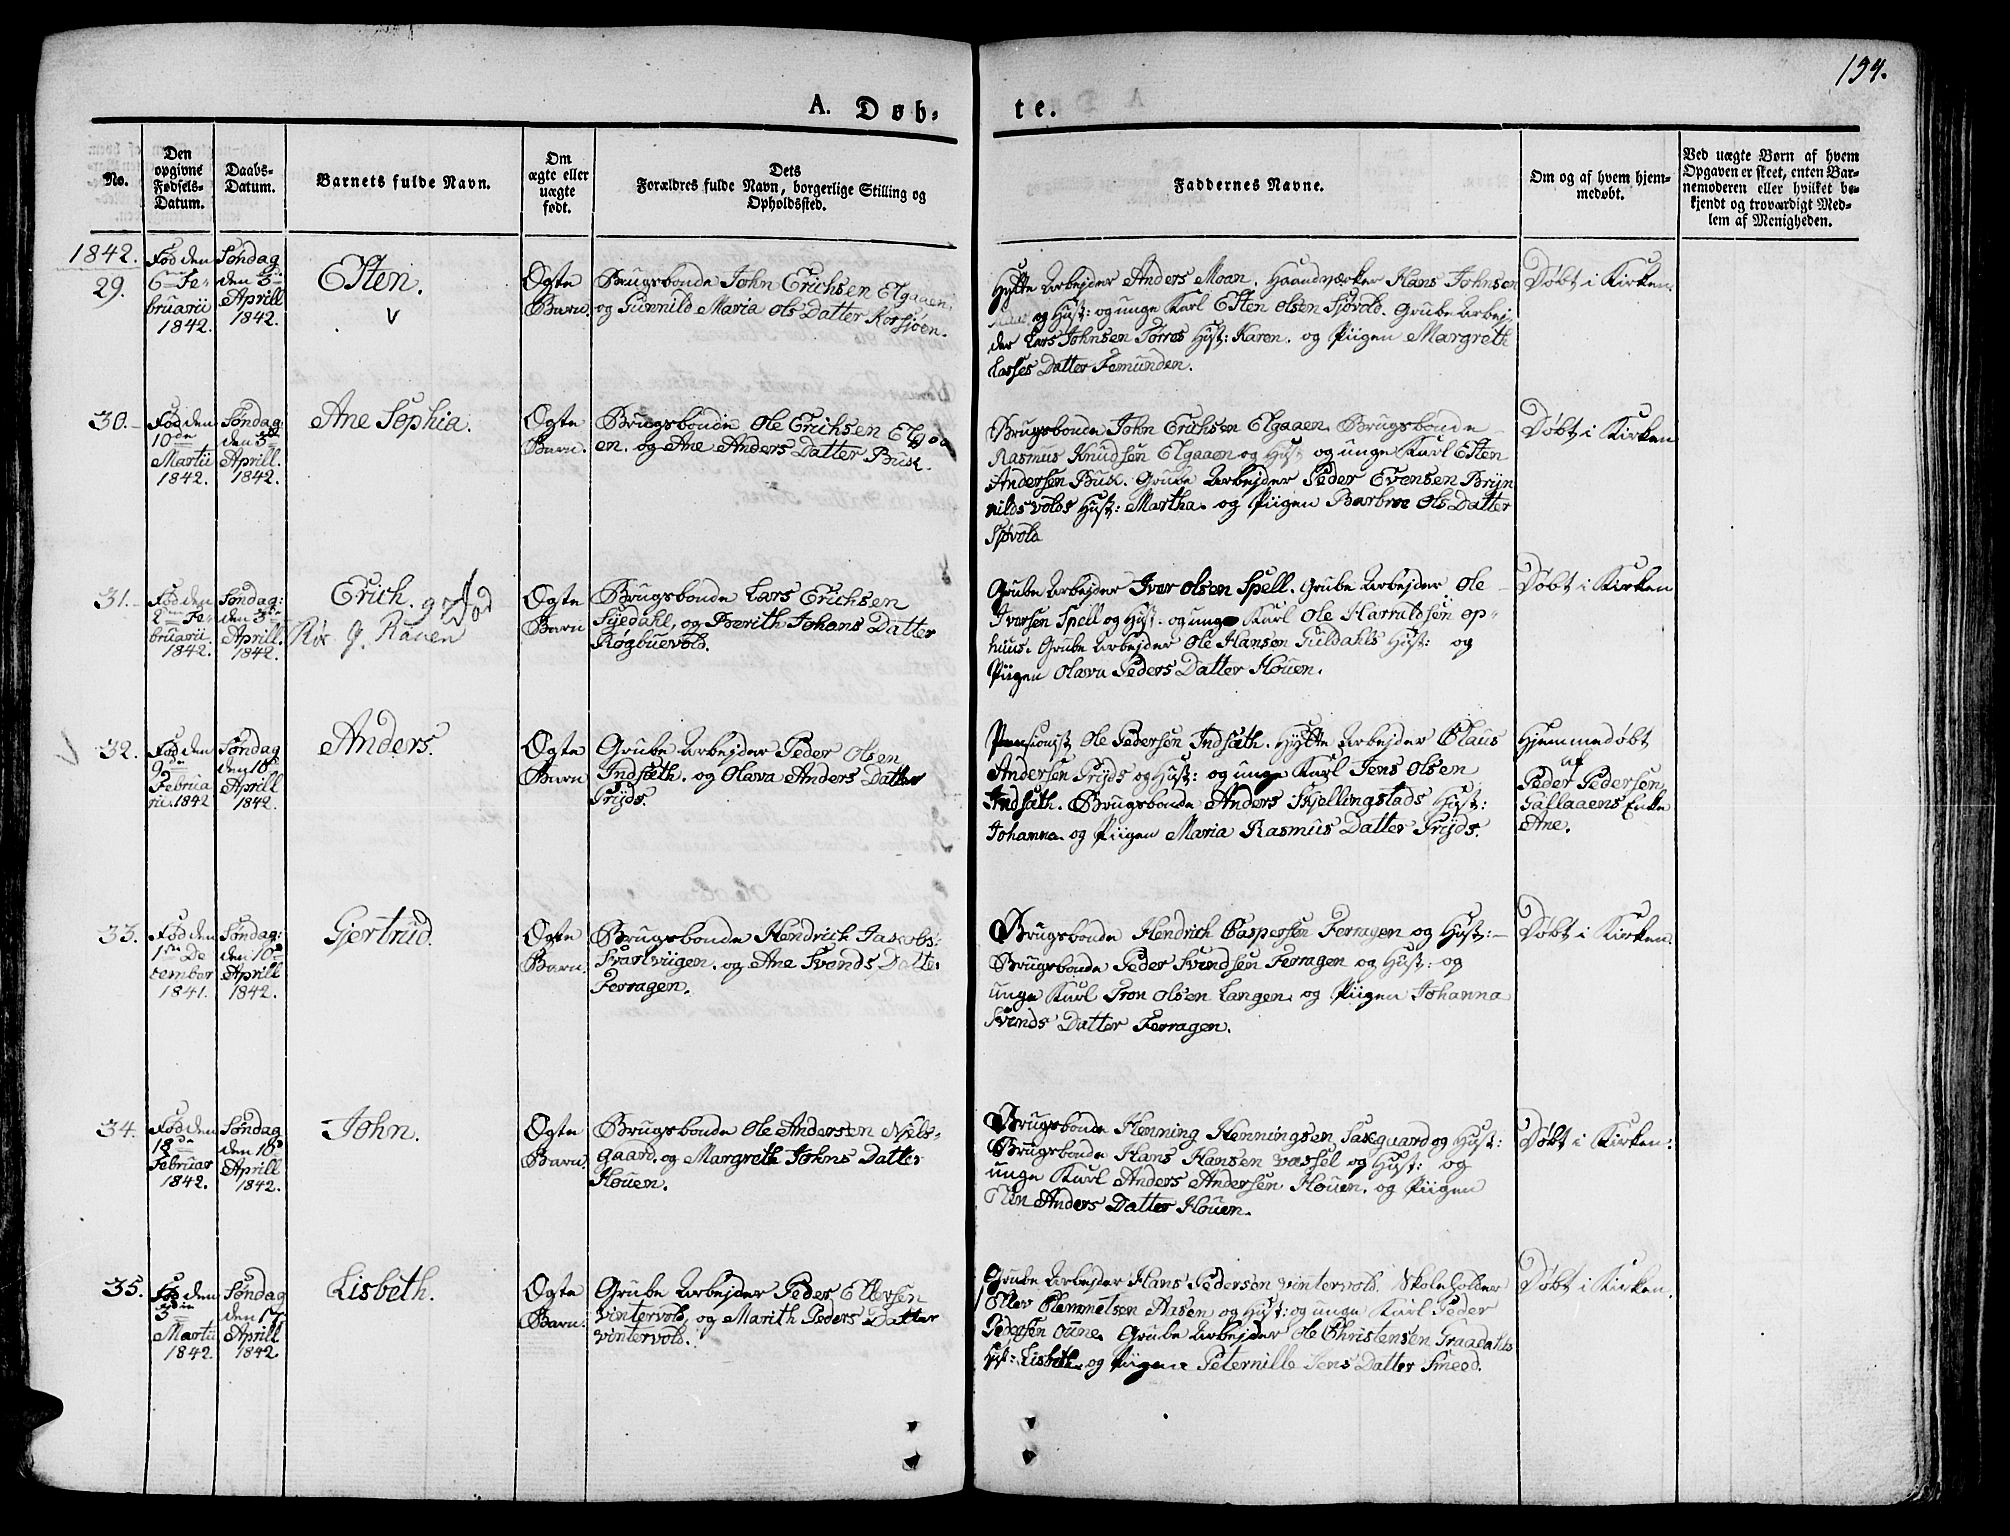 134.
A. Døb-
te.
No.
Den
opgivne
Fødsels-
Datum.
Daabs-
Datum.
Barnets fulde Navn.
Om
ægte eller
uægte
født.
Dets
Forældres fulde Navn, borgerlige Stilling og
Opholdssted.
Faddernes Navne.
Om og af hvem hjem-
medøbt.
Ved uægte Børn af hvem
Opgaven er skeet, enten Bar-
nemoderen eller hvilket be-
kjendt og troværdigt Med-
lem af Menigheden.
1842.
29.
Fød den
6te Fe-
bruarii
1842.
Søndag
den 3die
Aprill
1842.
Esten.
Ægte
Barn.
Brugsbonde John Erichsen Elgaaen,
og Gunnild Maria Ols Datter Korsjöen.
Hytte Arbejder Anders Moan. Haandværker Hans Johnsen
og Hust: og unge Karl Esten Olsen Sjøvold. Grube Arbej-
der Lars Johnsen Torres Hust: Karen. og Piigen Margreth
Lasses Datter Femunden.
Døbt i Kirken.
30.
Fød den
10de
Martii
1842.
Søndag:
den 3die
Aprill.
1842.
Ane Sophia.
Ægte
Barn.
Brugsbonde Ole Erichsen Elgaa
en. og Ane Anders Datter Busk.
Brugsbonde John Erichsen Elgaaen. Brugsbonde
Rasmus Knudsen Elgaaen og Hust og unge Karl Esten
Andersen Busk. Grube Arbejder Peder Evensen Bryn
nildsvolds Hust: Martha. og Piigen Barbroe Ols Datter
Sjøvold
Døbt i Kirken
31.
Fød den
2den Fe-
bruarii
1842.
Søndag:
den 3die
Aprill.
1842.
Erich.
Rør g. Rauen
Ægte
Barn
Brugsbonde Lars Erichsen
Syedahl, og Berith Johans Datter
Røgbuevold.
Grube Arbejder Ivar Olsen Spell. Grube Arbejder Ole
Iversen Spell og Hust. og unge Karl Ole Harraldsen op-
huus. Grube Arbejder Ole Hansen Guldahls Hust: og
Piigen Olava Peders Datter Houen.
Døbt i Kirken
32.
Fød den
9de
Februa
rii 1842
Søndag
den 10de
Aprill
1842.
Anders.
Ægte
Barn
Grube Arbejder Peder Olsen
Indsæth. og Olava Anders Datter
Pryds.
Pensionist Ole Pedersen Indsæth. Hytte Arbejder Claus
Andersen Pryds og Hust: og unge Karl Jens Olsen
Indsæth. Brugsbonde Anders Skjellingstads Hust:
Johanna. og Piigen Maria Rasmus Datter Pryds.
Hjemmedøbt
af
Peder Pedersen
Gallaaens Enke
Ane.
33.
Fød den
1ste De
cember
1841.
Søndag:
den 10de
Aprill
1842.
Gjertrud.
Ægte
Barn.
Brugsbonde Hendrich Jacobs:
Svartviigen. og Ane Svends Datter
Ferragen.
Brugsbonde Hendrich Caspersen Ferragen og Hust:
Brugsbonde Peder Svendsen Ferragen og Hust: og
unge Karl Tron Olsen Langen. og Piigen Johanna
Svends Datter Ferragen.
Døbt i Kirken.
34.
Fød den
18de
Februar
1842.
Søndag
den 10de
Aprill
1842.
John.
Ægte
Barn.
Brugsbonde Ole Andersen Niels-
gaard. og Margreth Johns Datter
Houen.
Brugsbonde Henning Henningsen Saxegaard og Hust:
Brugsbonde Hans Hansen Vessel og Hust: og
unge Karl Anders Andersen Houen. og Piigen
Elen Anders Datter Houen.
Døbt i Kirken:
35.
Fød den
3die
Martii
1842
Søndag
den 17de
Aprill
1842.
Lisbeth.
Ægte
Barn.
Grube Arbejder Peder Ellevsen
Vintervold, og Marith Peders Datter
Vintervold.
Grube Arbejder Hans Pedersen Vintervold. Skoleholder
Ellev Clemmetsen Aasen og Hust: og unge Karl Peder
Pedersen Oune. Grube Arbejder Ole Christensen Graadahls
Hust: Lisbeth. og Piigen Peternille Jens Datter Smed.
Døbt i Kirken.